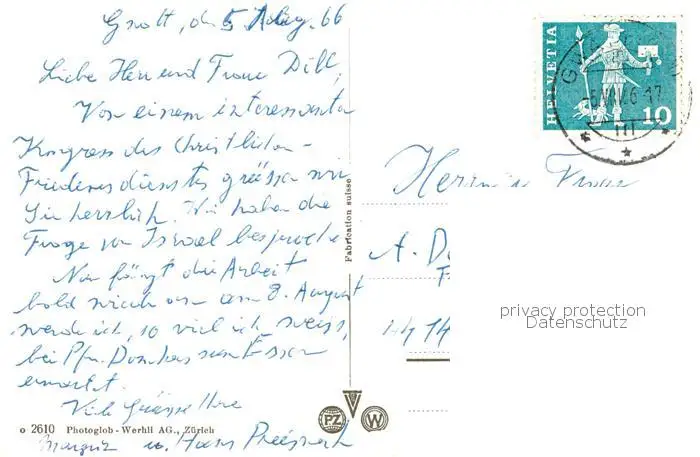 Gwatt, den 5. Aug. 66
Liebe Herr und Frau Dill,
Von einem interessanten
Kongress des Christlichen
Friedensdienstes grüssen wir
Sie herzlich. Wir haben die
Frage von Israel besprochen
Nun fängt die Arbeit
bald wieder an am 8. August
werde ich, so viel ich weiss,
bei Pfr. zum Essen
erwartet.
Viele Grüsse Ihre
u. Hans
o 2610 Photoglob-Wehrli AG., Zürich
Fabrication suisse
PZ W
HELVETIA
10
Herrn u. Frau
A. D
F
4414
privacy protection
Datenschutz